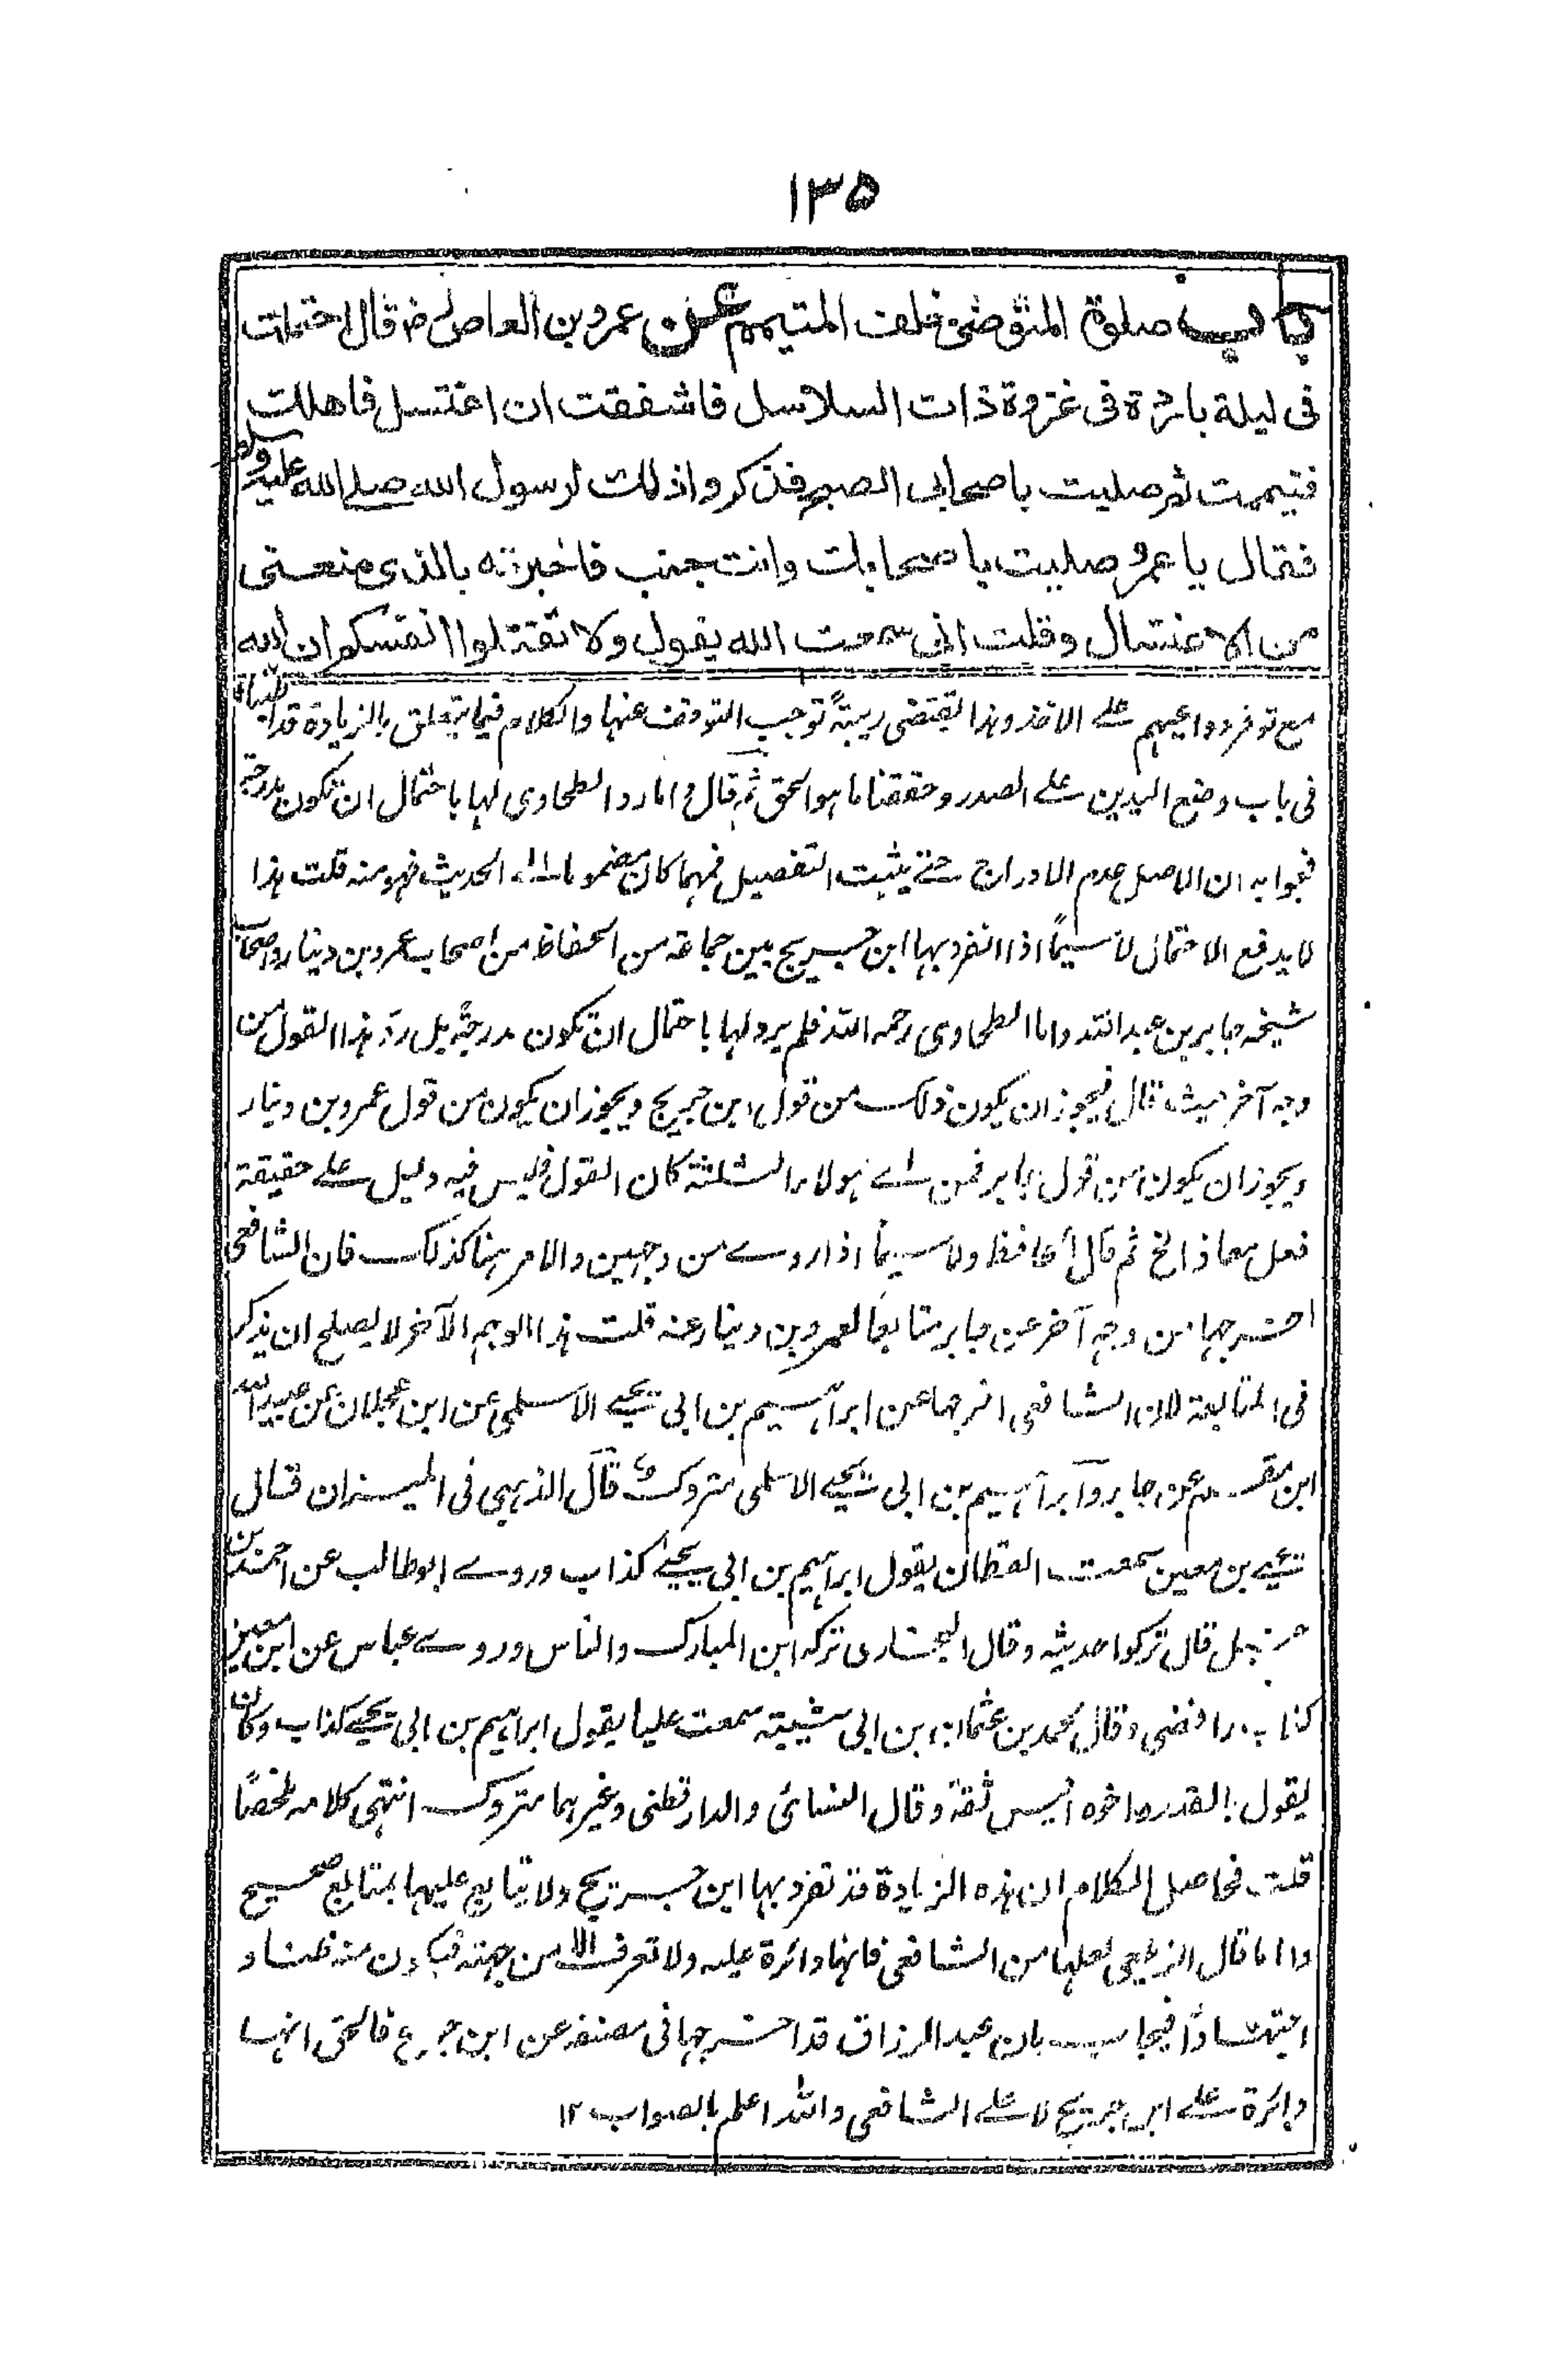 ١٣٥
باب صلوة المتوضئ خلف المتيمم عن عمرو بن العاص رض قال احتلمت
فى ليلة باردة فى غزوة ذات السلاسل فاشفقت ان اغتسل فاهلك
فتيممت ثم صليت باصحابى الصبح فذكروا ذلك لرسول الله صلى الله عليه وسلم
فقال يا عمرو صليت باصحابك وانت جنب فاخبرته بالذى منعنى
من الاغتسال وقلت انى سمعت الله يقول ولا تقتلوا انفسكم ان الله
مع توفر دواعيهم على الاخذ وهذا يقتضى ريبةً توجب التوقف عنها والكلام فيما يتعلق بالزيادة قد
فى باب وضع اليدين على الصدر وحققنا ما هو الحق ثم قال واما رد الطحاوى لها باحتمال ان تكون مدرجة
فجوابه ان الاصل عدم الادراج حتى يثبت التفصيل فمهما كان مضموما الى الحديث فهو منه قلت هذا
لا يدفع الاحتمال لا سيما اذا انفرد بها ابن جريج بين جماعة من الحفاظ من اصحاب عمرو بن دينار واصحاب
شيخه جابر بن عبد الله واما الطحاوى رحمه الله فلم يرد لها باحتمال ان تكون مدرجة بل رد هذا القول من
وجه آخر حيث قال فيجوز ان يكون ذلك من قول ابن جريج ويجوز ان يكون من قول عمرو بن دينار
ويجوز ان يكون من قول جابر فمن اى هولاء الثلثة كان القول فليس فيه دليل على حقيقة
فعل معاذ الخ ثم قال الحافظ ولا سيما اذا روى من وجهين والامر هنا كذلك فان الشافعى
اخرجها من وجه آخر عن جابر متابعا لعمرو بن دينار عنه قلت هذا الوجه الآخر لا يصلح ان يذكر
فى المتابعة لان الشافعى اخرجها عن ابراهيم بن ابى يحيى الاسلمى عن ابن عجلان عن عبيد الله
ابن مقسم عن جابر وابراهيم بن ابى يحيى الاسلمى متروك قال الذهبى فى الميزان قال
يحيى بن معين سمعت القطان يقول ابراهيم بن ابى يحيى كذاب وروى ابو طالب عن احمد بن
حنبل قال تركوا حديثه وقال البخارى تركه ابن المبارك والناس وروى عباس عن ابن معين
كذاب رافضى وقال محمد بن عثمان بن ابى شيبة سمعت عليا يقول ابراهيم بن ابى يحيى كذاب وكان
يقول بالقدر واخوه انيس ثقة وقال النسائى والدارقطنى وغيرهما متروك انتهى كلامه ملخصًا
قلت فحاصل الكلام ان هذه الزيادة قد تفرد بها ابن جريج ولا يتابع عليها بمتابع صحيح
واما ما قال الزيلعى لعلها من الشافعى فانها دائرة عليه ولا تعرف الا من جهته فيكون منه ظنا و
اجتهادًا فيجاب بان عبد الرزاق قد اخرجها فى مصنفه عن ابن جريج فالحق انها
دائرة على ابن جريج لا على الشافعى والله اعلم بالصواب ١٢